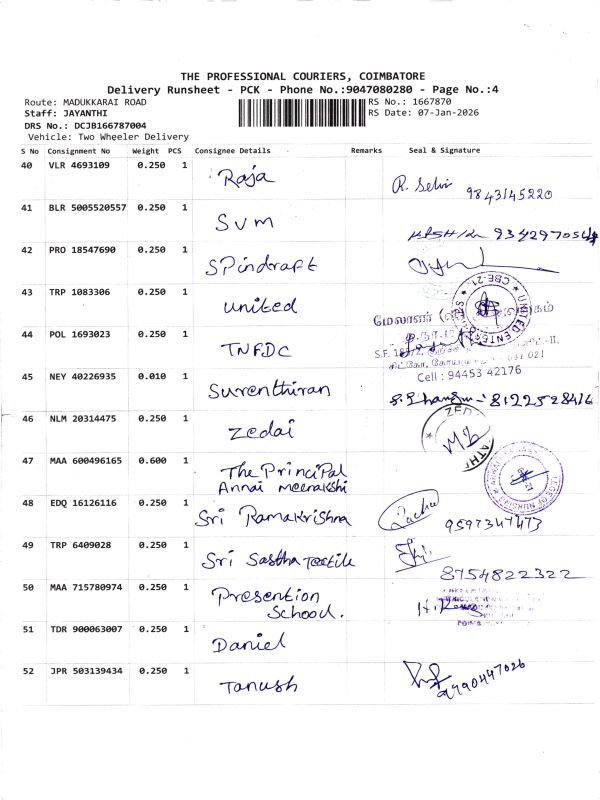 THE PROFESSIONAL COURIERS, COIMBATORE
Delivery Runsheet - PCK - Phone No.:9047080280 - Page No.:4
Route: MADUKKARAI ROAD
RS No.: 1667870
Staff: JAYANTHI
RS Date: 07-Jan-2026
DRS No.: DCJB166787004
Vehicle: Two Wheeler Delivery
S No Consignment No Weight PCS Consignee Details Remarks Seal & Signature
40 VLR 4693109 0.250 1 Raja R. Selvi 9843145220
41 BLR 5005520557 0.250 1 SVM
42 PRO 18547690 0.250 1 SPindraft
43 TRP 1083306 0.250 1 United
மேலாளர்
44 POL 1693023 0.250 1 TNFDC
Cell : 94453 42176
45 NEY 40226935 0.010 1 Surenthiran 8122528416
46 NLM 20314475 0.250 1 Zedai ZED
47 MAA 600496165 0.600 1 The Principal
Annai Meenakshi
48 EDQ 16126116 0.250 1 Sri Ramakrishna 9597347473
49 TRP 6409028 0.250 1 Sri Sastha Textile
8754822322
50 MAA 715780974 0.250 1 Presention
School.
51 TDR 900063007 0.250 1 Daniel
52 JPR 503139434 0.250 1 Tanush 9790447026